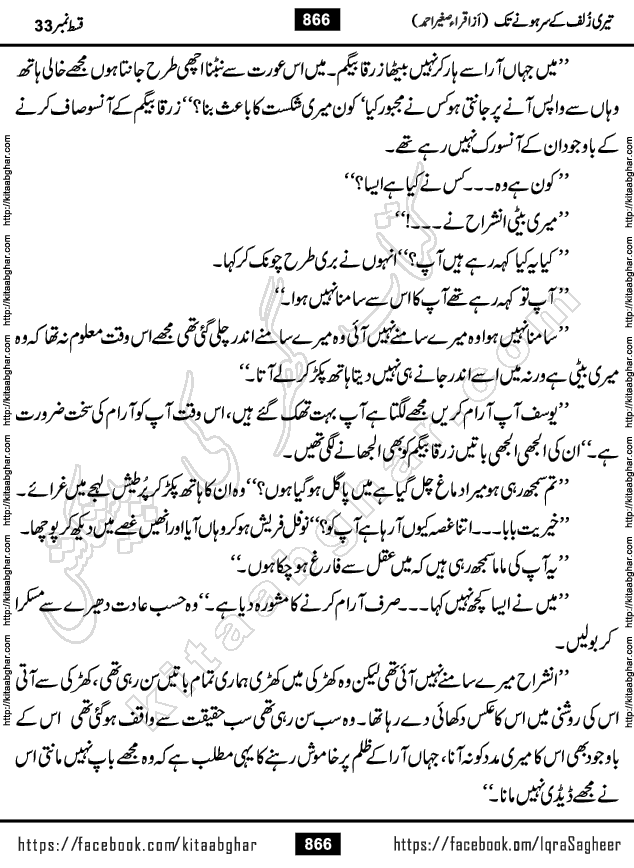 تیری زُلف کے سر ہونے تک (از اقراء صغیر احمد) 866 قسط نمبر 33
’’میں جہاں آرا سے ہار کر نہیں بیٹھا زرقا بیگم۔ میں اس عورت سے نبٹنا اچھی طرح جانتا ہوں مجھے خالی ہاتھ
وہاں سے واپس آنے پر جانتی ہو کس نے مجبور کیا‘ کون میری شکست کا باعث بنا؟‘‘ زرقا بیگم کے آنسو صاف کرنے
کے باوجود ان کے آنسو رک نہیں رہے تھے۔
’’کون ہے وہ۔۔۔کس نے کیا ہے ایسا؟‘‘
’’میری بیٹی انشراح نے۔۔۔!‘‘
’’کیا یہ کیا کہہ رہے ہیں آپ؟‘‘ انہوں نے بری طرح چونک کر کہا۔
’’آپ تو کہہ رہے تھے آپ کا اس سے سامنا نہیں ہوا۔‘‘
’’سامنا نہیں ہوا وہ میرے سامنے نہیں آئی وہ میرے سامنے اندر چلی گئی تھی مجھے اس وقت معلوم نہ تھا کہ وہ
میری بیٹی ہے ورنہ میں اسے اندر جانے ہی نہیں دیتا ہاتھ پکڑ کر لے آتا۔‘‘
’’یوسف آپ آرام کریں مجھے لگتا ہے آپ بہت تھک گئے ہیں، اس وقت آپ کو آرام کی سخت ضرورت
ہے۔‘‘ ان کی الجھی الجھی باتیں زرقا بیگم کو بھی الجھانے لگی تھیں۔
’’تم سمجھ رہی ہو میرا دماغ چل گیا ہے میں پاگل ہو گیا ہوں؟‘‘ وہ ان کا ہاتھ پکڑ کر پُرطیش لہجے میں غرائے۔
’’خیریت بابا۔۔۔اتنا غصہ کیوں آ رہا ہے آپ کو؟‘‘ نوفل فریش ہو کر وہاں آیا اور انھیں غصے میں دیکھ کر پوچھا۔
’’یہ آپ کی ماما سمجھ رہی ہیں کہ میں عقل سے فارغ ہو چکا ہوں۔‘‘
’’میں نے ایسا کچھ نہیں کہا۔۔۔صرف آرام کرنے کا مشورہ دیا ہے۔‘‘ وہ حسب عادت دھیرے سے مسکرا
کر بولیں۔
’’انشراح میرے سامنے نہیں آئی تھی لیکن وہ کھڑکی میں کھڑی ہماری تمام باتیں سن رہی تھی، کھڑکی سے آتی
اس کی روشنی میں اس کا عکس دکھائی دے رہا تھا۔ وہ سب سن رہی تھی سب حقیقت سے واقف ہو گئی تھی اس کے
باوجود بھی اس کا میری مدد کو نہ آنا، جہاں آرا کے ظلم پر خاموش رہنے کا یہی مطلب ہے کہ وہ مجھے باپ نہیں مانتی اس
نے مجھے ڈیڈی نہیں مانا۔‘‘
https://facebook.com/kitaabghar 866 https://facebook.om/IqraSagheer
http://kitaabghar.com http://kitaabghar.com http://kitaabghar.com http://kitaabghar.com http://kitaabghar.com http://kitaabghar.com
http://kitaabghar.com http://kitaabghar.com http://kitaabghar.com http://kitaabghar.com http://kitaabghar.com http://kitaabghar.com
کتاب گھر کی پیشکش
kitaabghar.com